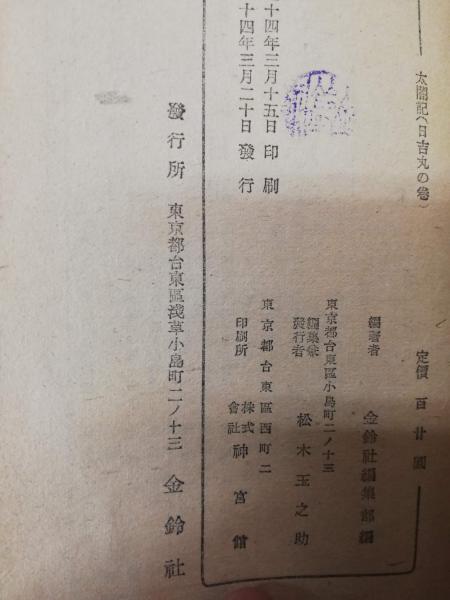 太閤記(日吉丸の巻)
定價 百廿圓
編著者 金鈴社編集部編
東京都台東區小島町二ノ十三
編集兼發行者 松木玉之助
東京都台東區西町二
印刷所 株式會社 神宮館
十四年三月十五日印刷
十四年三月二十日發行
發行所 東京都台東區淺草小島町二ノ十三 金鈴社